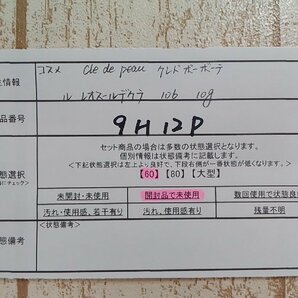 コスメ Cle de peau クレドポーボーテ
主情報
ル レオスールデクラ 106 10g
品番号
9H12P
セット商品の場合は多数の状態選択となります。
個別情報は状態備考に記載します。
<下記状態選択は左上より良好で、下段右側が一番状態が低くなります。>
態選択
にチェック)
【60】【80】【大型】
未開封・未使用 開封品で未使用 数回使用で状態良
汚れ・使用感、若干有り 汚れ、使用感有り 残量不明
<状態備考>
態備考